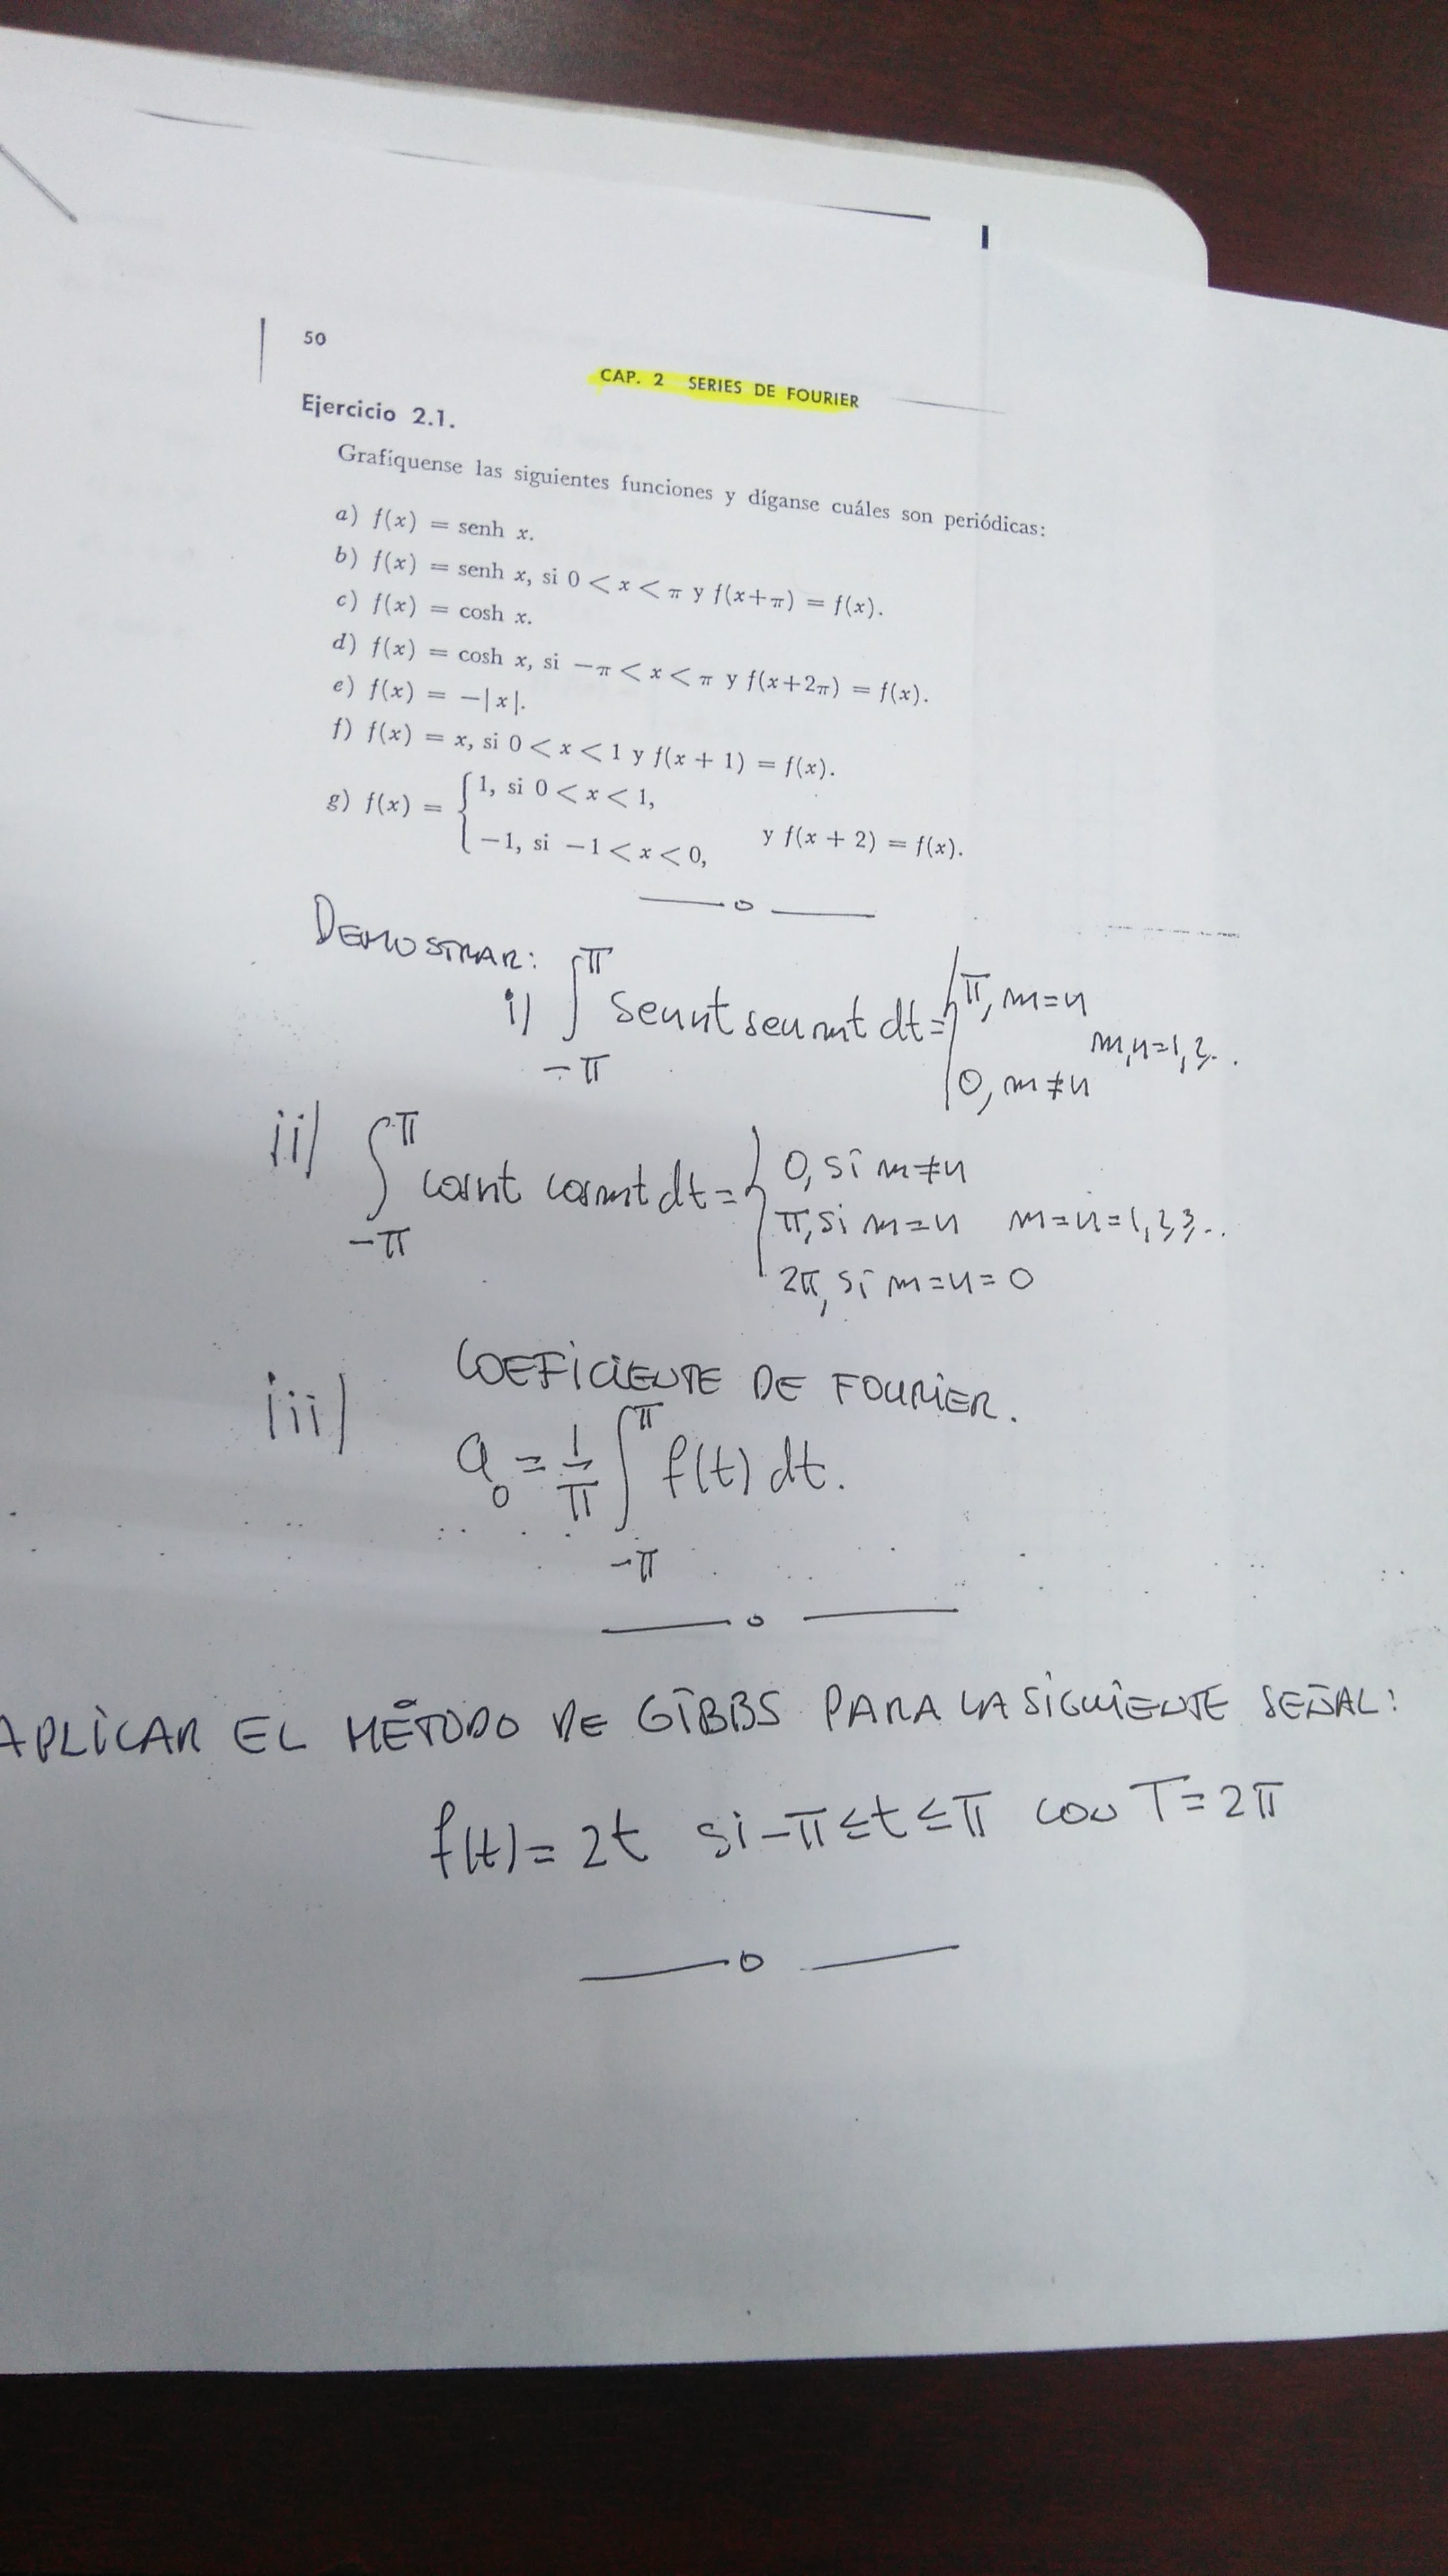 50
CAP. 2 SERIES DE FOURIER
Ejercicio 2.1.
Grafíquense las siguientes funciones y díganse cuáles son periódicas:
a) f(x) = senh x.
b) f(x) = senh x, si 0 < x < π y f(x+π) = f(x).
c) f(x) = cosh x.
d) f(x) = cosh x, si −π < x < π y f(x+2π) = f(x).
e) f(x) = −|x|.
f) f(x) = x, si 0 < x < 1 y f(x + 1) = f(x).
g) f(x) = { 1, si 0 < x < 1,
−1, si −1 < x < 0, y f(x + 2) = f(x).
DEMOSTRAR:
i) ∫_{-π}^{π} sen nt sen mt dt = { π, m=n
0, m≠n m,n=1,2...
ii) ∫_{-π}^{π} cos nt cos mt dt = { 0, si m≠n
π, si m=n m=n=1,2,3...
2π, si m=n=0
iii) COEFICIENTE DE FOURIER.
a₀ = 1/π ∫_{-π}^{π} f(t) dt.
APLICAR EL MÉTODO DE GIBBS PARA LA SIGUIENTE SEÑAL:
f(t) = 2t si -π ≤ t ≤ π con T = 2π